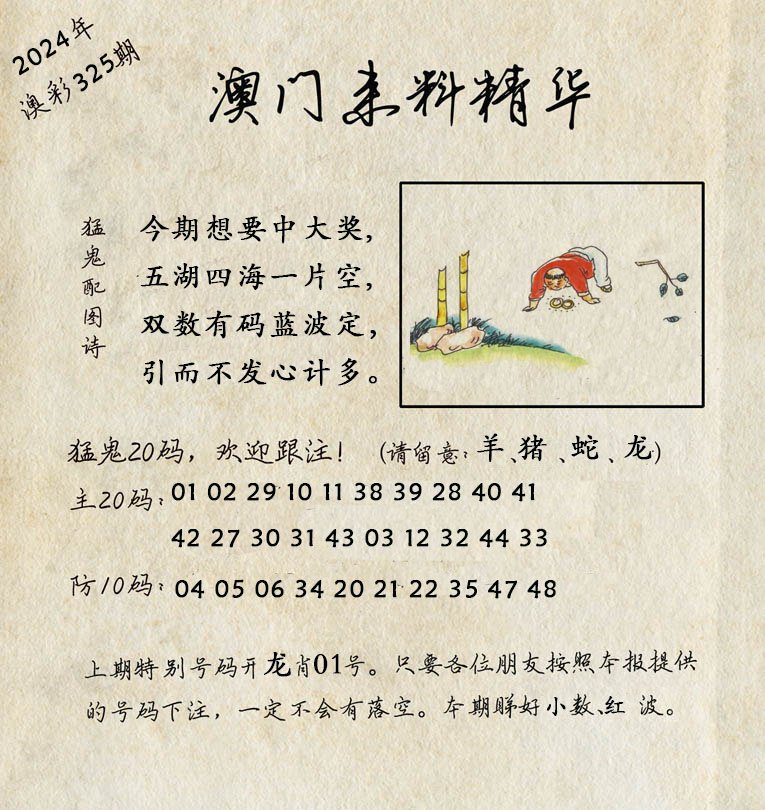 2024年
澳彩325期
澳门来料精华
猛鬼配图诗
今期想要中大奖，
五湖四海一片空，
双数有码蓝波定，
引而不发心计多。
猛鬼20码，欢迎跟注！（请留意：羊、猪、蛇、龙）
主20码：01 02 29 10 11 38 39 28 40 41
42 27 30 31 43 03 12 32 44 33
防10码：04 05 06 34 20 21 22 35 47 48
上期特别号码开龙肖01号。只要各位朋友按照本报提供
的号码下注，一定不会有落空。本期睇好小数、红 波。